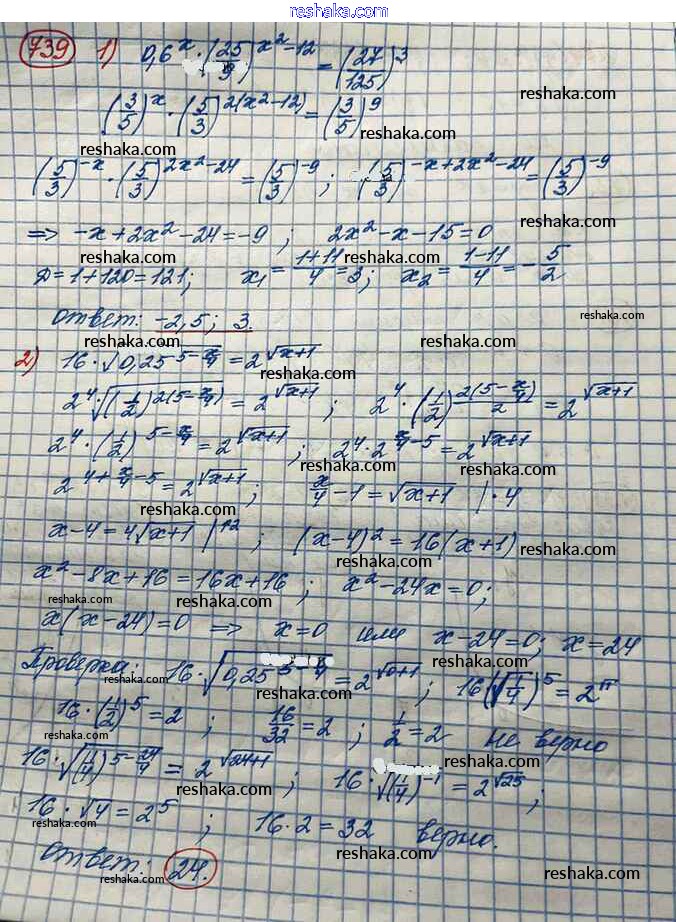 reshaka.com
739 1) 0,6^x · (25/9)^(x²-12) = (27/125)^3
reshaka.com
(3/5)^x · (5/3)^(2(x²-12)) = (3/5)^9
reshaka.com reshaka.com
(5/3)^(-x) · (5/3)^(2x²-24) = (5/3)^(-9) ; (5/3)^(-x+2x²-24) = (5/3)^(-9)
reshaka.com reshaka.com
=> -x+2x²-24=-9 ; 2x²-x-15=0
reshaka.com reshaka.com
D=1+120=121; x₁ = (1+11)/4 = 3; x₂ = (1-11)/4 = -5/2
reshaka.com reshaka.com
Ответ: -2,5; 3.
reshaka.com reshaka.com
2) 16·√(0,25^(5-x/4)) = 2^√(x+1)
reshaka.com reshaka.com
2^4·√((1/2)^(2(5-x/4))) = 2^√(x+1) ; 2^4·(1/2)^(2(5-x/4)/2) = 2^√(x+1)
reshaka.com reshaka.com
2^4·(1/2)^(5-x/4) = 2^√(x+1); 2^4·2^(x/4-5) = 2^√(x+1)
reshaka.com reshaka.com
2^(4+x/4-5) = 2^√(x+1); x/4-1=√(x+1) |·4
reshaka.com reshaka.com
x-4=4√(x+1) |^2 ; (x-4)²=16(x+1)
reshaka.com reshaka.com
x²-8x+16=16x+16 ; x²-24x=0;
reshaka.com reshaka.com
x(x-24)=0 => x=0 или x-24=0; x=24
reshaka.com reshaka.com
Проверка: 16·√(0,25^(5-0/4)) = 2^√(0+1) ; 16(√(1/4))^5 = 2^√1
reshaka.com reshaka.com
16·(1/2)^5=2 ; 16/32=2 ; 1/2=2 не верно
reshaka.com reshaka.com
16·√((1/4)^(5-24/4)) = 2^√(24+1) ; 16·√((1/4)^(-1)) = 2^√25 ;
reshaka.com reshaka.com
16·√4=2^5 ; 16·2=32 верно.
reshaka.com reshaka.com
Ответ: 24.
reshaka.com reshaka.com